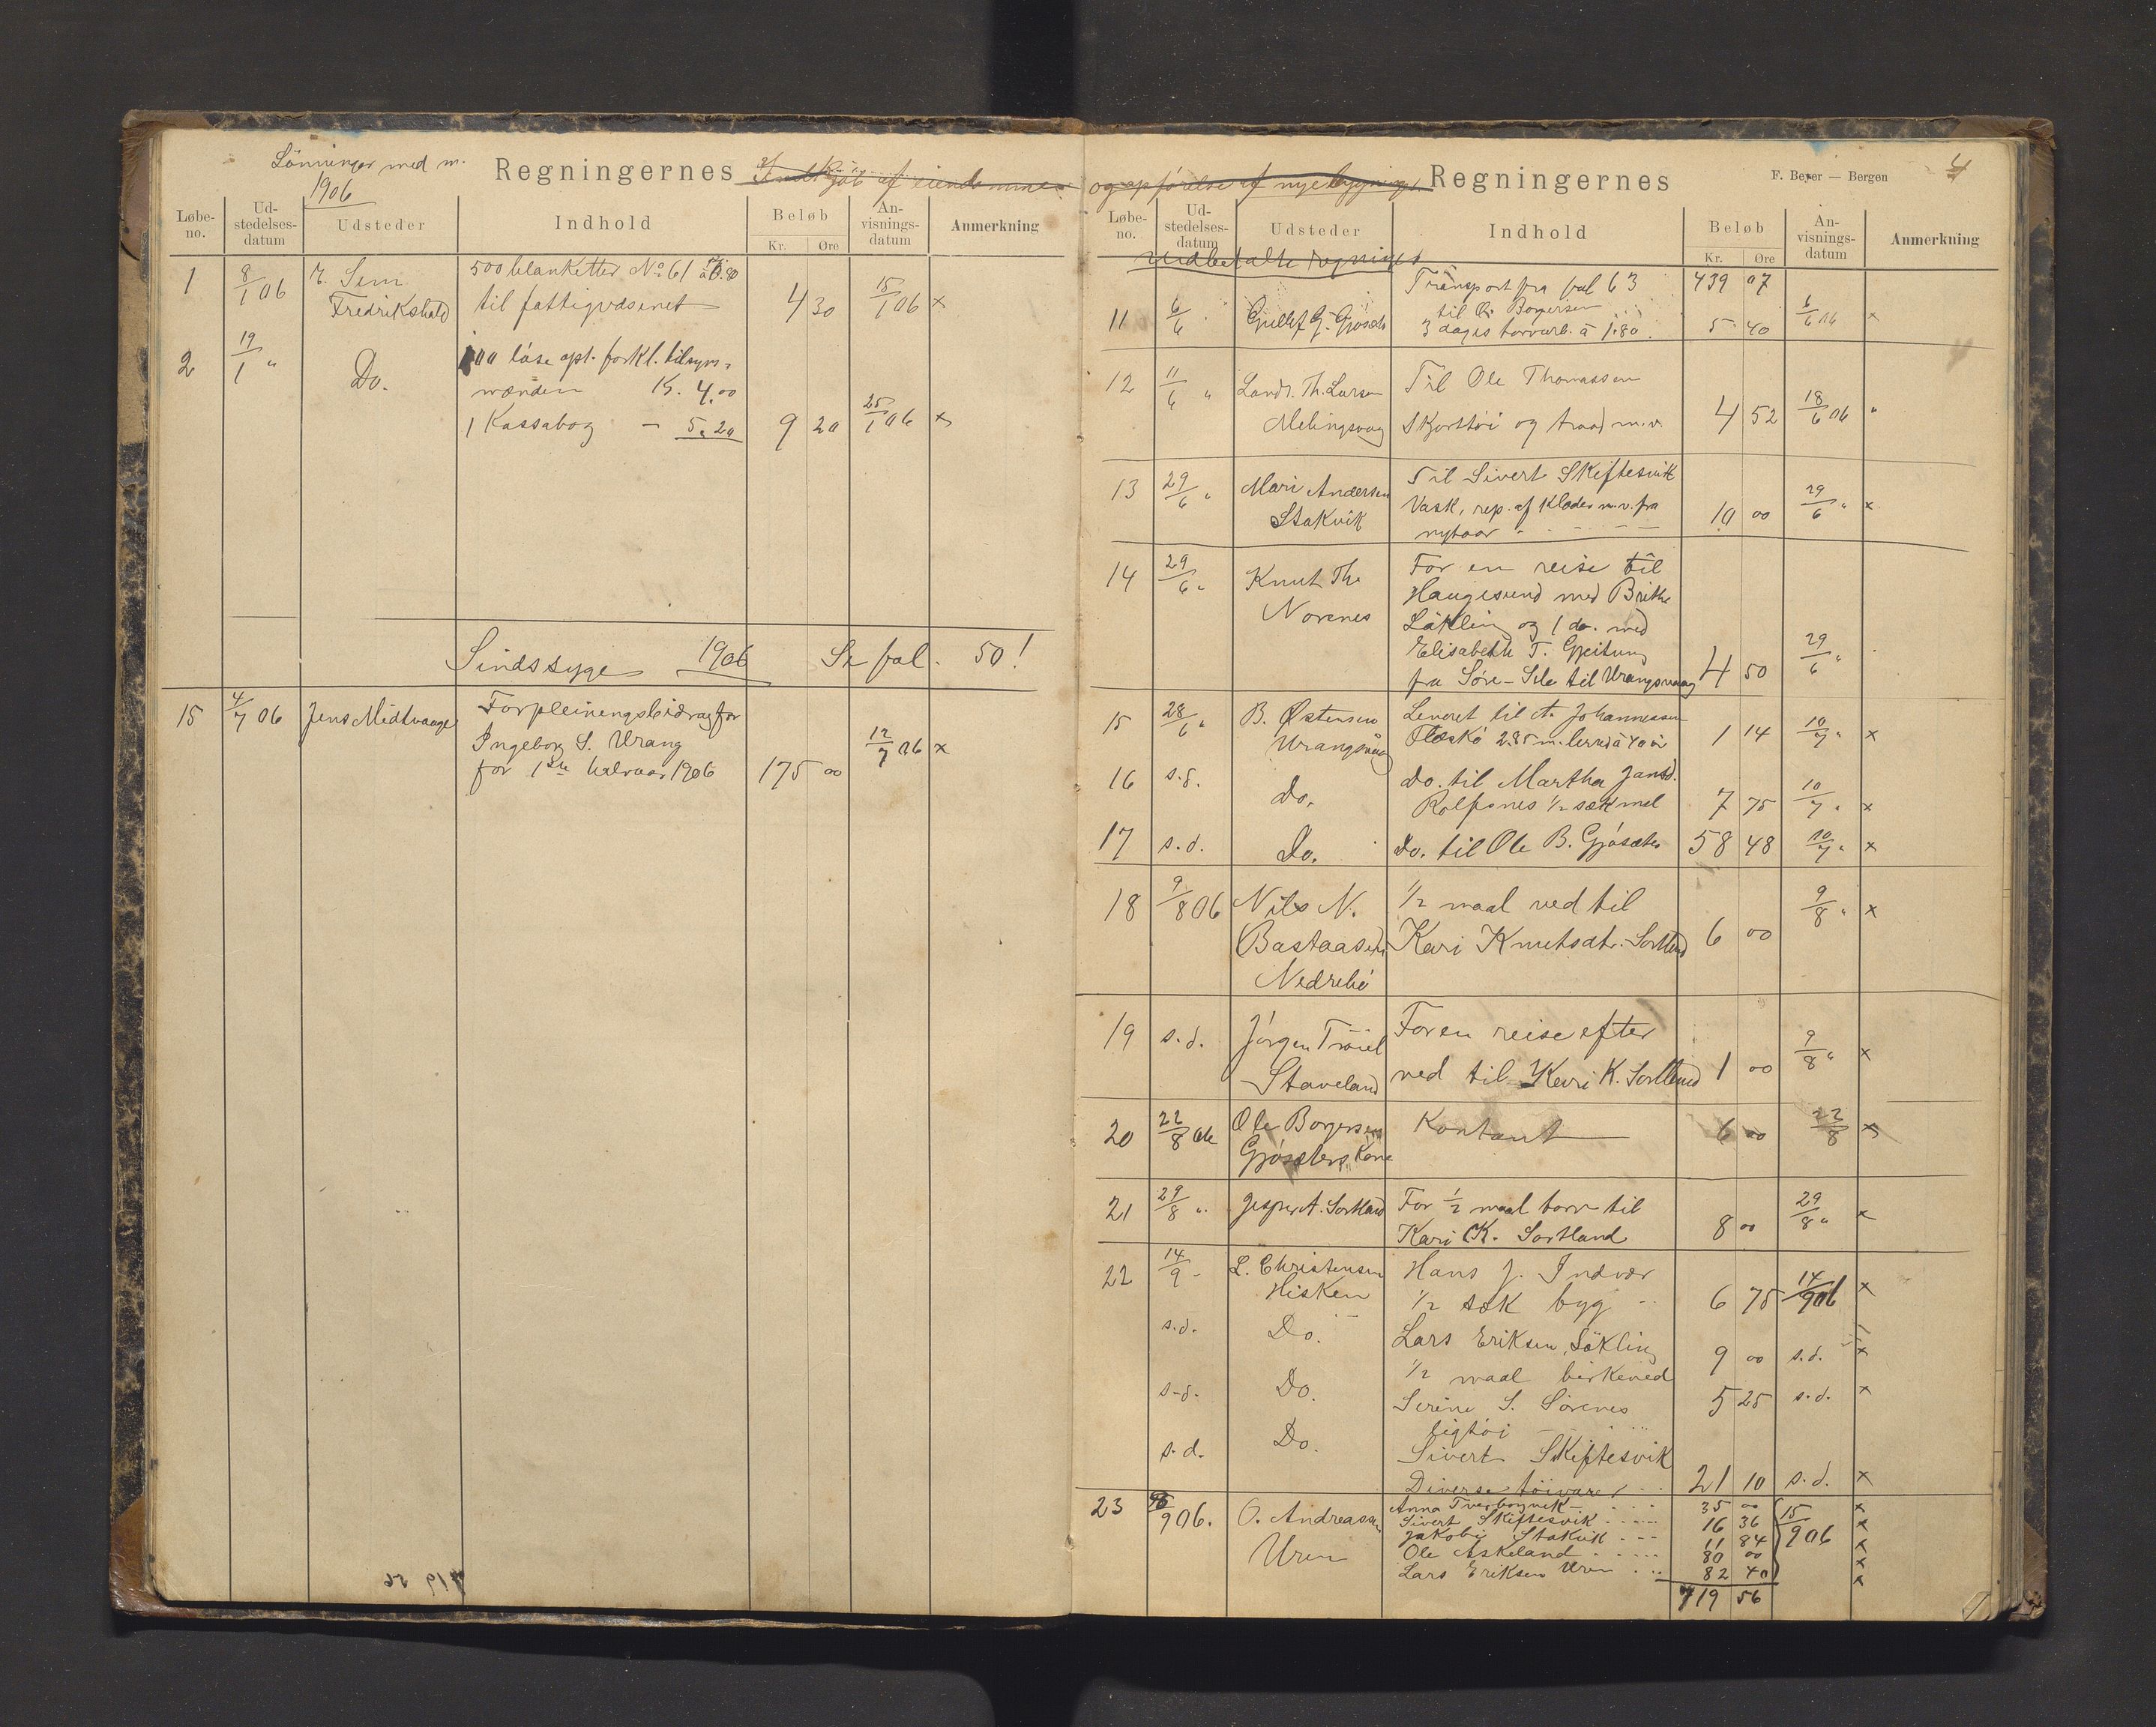 Lönninger med m.
1906
Regningernes
Indkjøb af eiendommer
Løbe-no. Ud-stedelses-datum Udsteder Indhold Beløb Kr. Øre An-visnings-datum Anmerkning
1 8/1 06 E. Sem 500 blanketter No 61 à 0.80
Fredrikshald til fattigvæsenet 4 30 15/1 06 x
2 19/1 " Do. 100 løse opt. forkl. tilsyns-
mænden K. 4.00
1 Kassabog - 5.20 9 20 25/1 06 x
Sindssyge 1906 Se fol. 50!
15 4/7 06 Jens Midtvaage Forpleiningsbidrag for
Ingeborg S. Vrang
for 1ste halvaar 1906 175 00 12/7 06 x
og opførelse af nye bygninger
Regningernes
F. Beyer — Bergen
4
Løbe-no. Ud-stedelses-datum Udsteder Indhold Beløb Kr. Øre An-visnings-datum Anmerkning
uudbetalte regninger
Transport fra fol 63 439 07
11 6/6 Gullef G. Gjøsæter til O. Borgersen
3 dages torvarb. à 1.80. 5 40 6/6 06 x
12 11/6 " Landh. Th. Larsen Til Ole Thomassen
Melingsvaag Skjorttøi og traad m.v. 4 52 18/6 06 "
13 29/6 " Mari Andersen Til Sivert Skiftesvik
Stokvik Vask, rep. af klæder m.v. fra
nytaar - - - - 10 00 29/6 " x
14 29/6 " Knut Th. For en reise til
Norenes Haugesund med Brithe
Løkling og 1 do. med
Elisabeth T. Gjeitung
fra Søre-Sele til Vrangsvaag 4 50 29/6 "
15 28/6 " B. Østensen Leveret til A. Johannessen
Vrangsvaag Fløskø 2.85 m. lerred à 40 ø 1 14 10/7 " x
16 s.d. Do. Do. til Martha Jansd.
Rolfsnes 1/2 sæk mel 7 75 10/7 " x
17 s.d. Do. Do. til Ole B. Gjøsæter 58 48 10/7 " x
18 9/8 06 Nils N. 1/2 maal ved til
Bastaasen Kari Knutsdtr. Sortland 6 00 9/8 " x
Nedrebø
19 s.d. Jørgen For en reise efter
Staveland ved til Kari K. Sortland 1 00 9/8 " x
20 22/8 06 Ole Borgersen Kontant 6 00 22/8 x
Gjøsæters Kone
21 29/8 " Jesper A. Sortland For 1/2 maal torv til
Kari K. Sortland 8 00 29/8 " x
22 14/9 - L. Christensen Hans J. Indvær
Hisken 1/2 sæk byg - 6 75 14/9 06 x
s.d. Do. Lars Eriksen, Løkling
1/2 maal birkeved 9 00 s.d. x
s.d. Do. Serine S. Sørenes
ligtøi 5 25 s.d. x
s.d. Do. Sivert Skiftesvik
Diverse tøivarer 21 10 s.d. x
23 15/9 06. O. Andreassen Anna Tverborgvik - 35 00 15/9 06 x
Uren Sivert Skiftesvik 16 36 x
Jakobi Stokvik 11 84 x
Ole Askeland 80 00 x
Lars Eriksen Uren 82 40 x
719 56